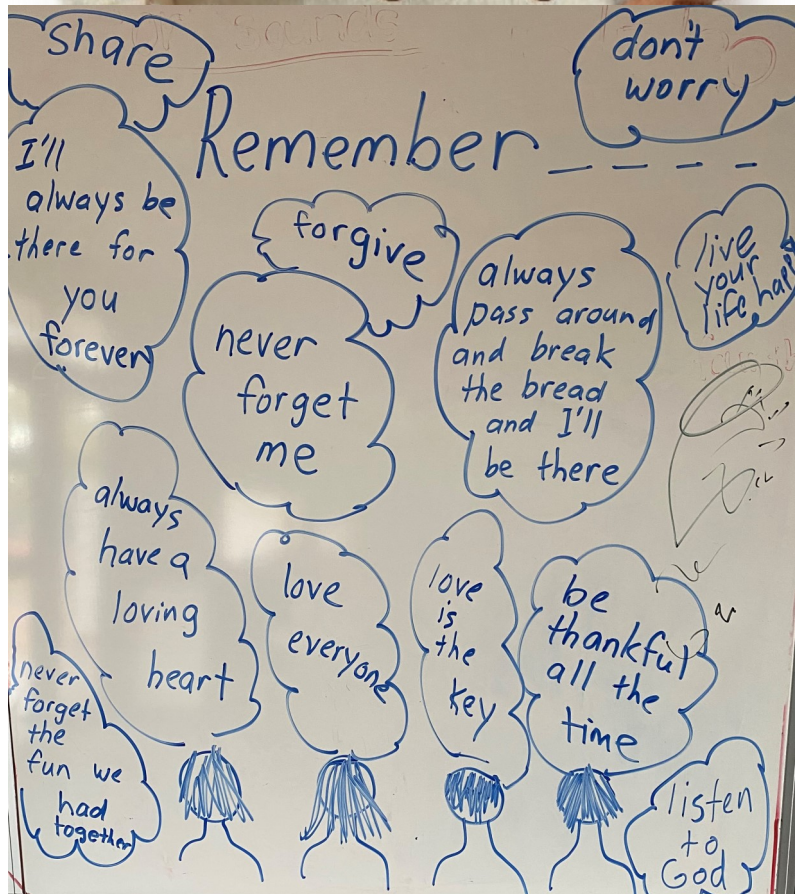 share
don't
worry
Remember _ _ _ _ _
I'll
always be
there for
you
forever
forgive
live
your
life happy
never
forget
me
always
pass around
and break
the bread
and I'll
be there
always
have a
loving
heart
love
everyone
love
is
the
key
be
thankful
all the
time
never
forget
the
fun we
had
together
listen
to
God